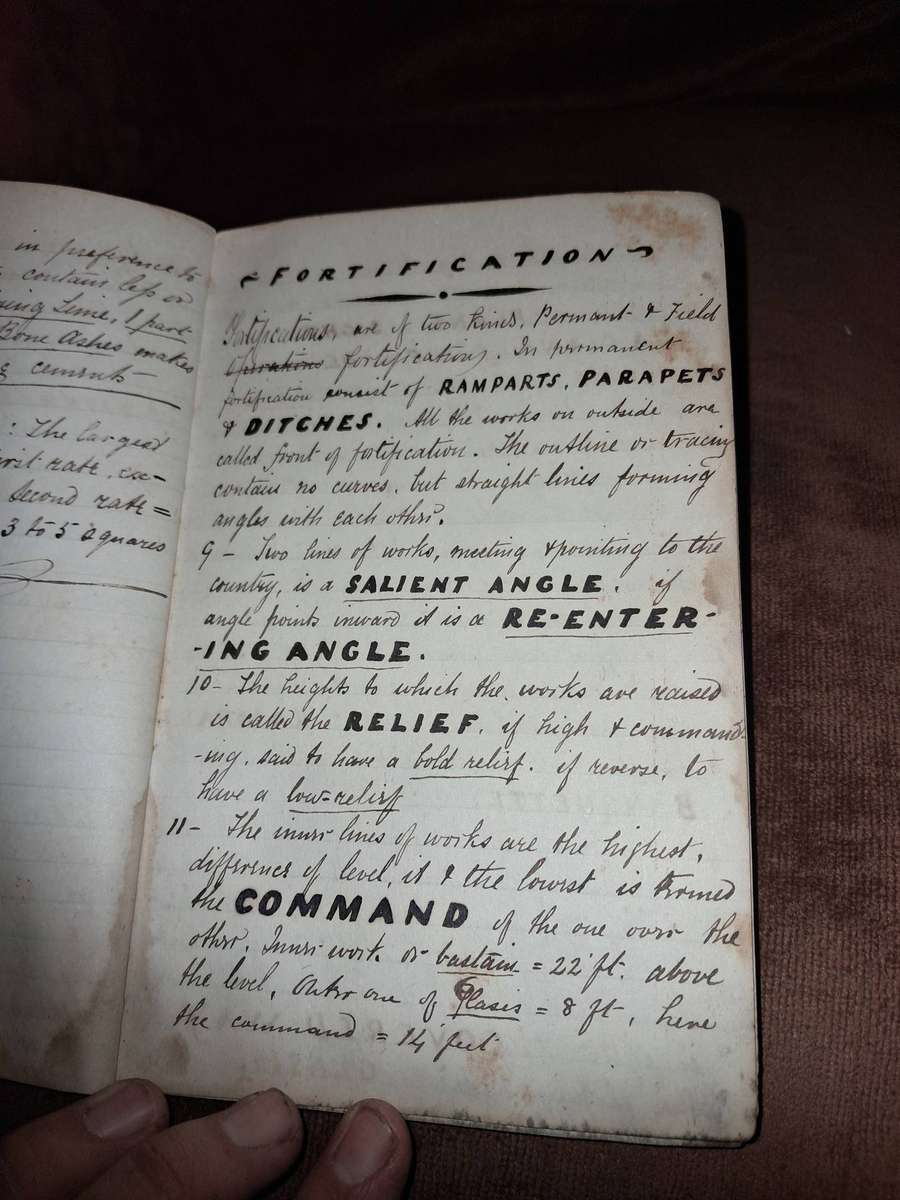 in preference to
contain less or
Lime, 1 part
Bone Ashes makes
cements
: The largest
rate, ex-
Second rate =
3 to 5 squares
FORTIFICATION
Fortifications, are of two kinds, Permant & Field
Operations fortifications. In permanent
fortification consist of RAMPARTS, PARAPETS
& DITCHES. All the works on outside are
called front of fortification. The outline or tracing
contain no curves, but straight lines forming
angles with each other.
9 - Two lines of works, meeting & pointing to the
country, is a SALIENT ANGLE. if
angle points inward it is a RE-ENTER-
-ING ANGLE.
10 - The heights to which the works are raised
is called the RELIEF, if high & command-
-ing, said to have a bold relief. if reverse, to
have a low-relief
11 - The inner lines of works are the highest,
difference of level, it & the lowest is termed
the COMMAND of the one over the
other. Inner work or bastain = 22 ft. above
the level, Outer one of Glasis = 8 ft, here
the command = 14 feet